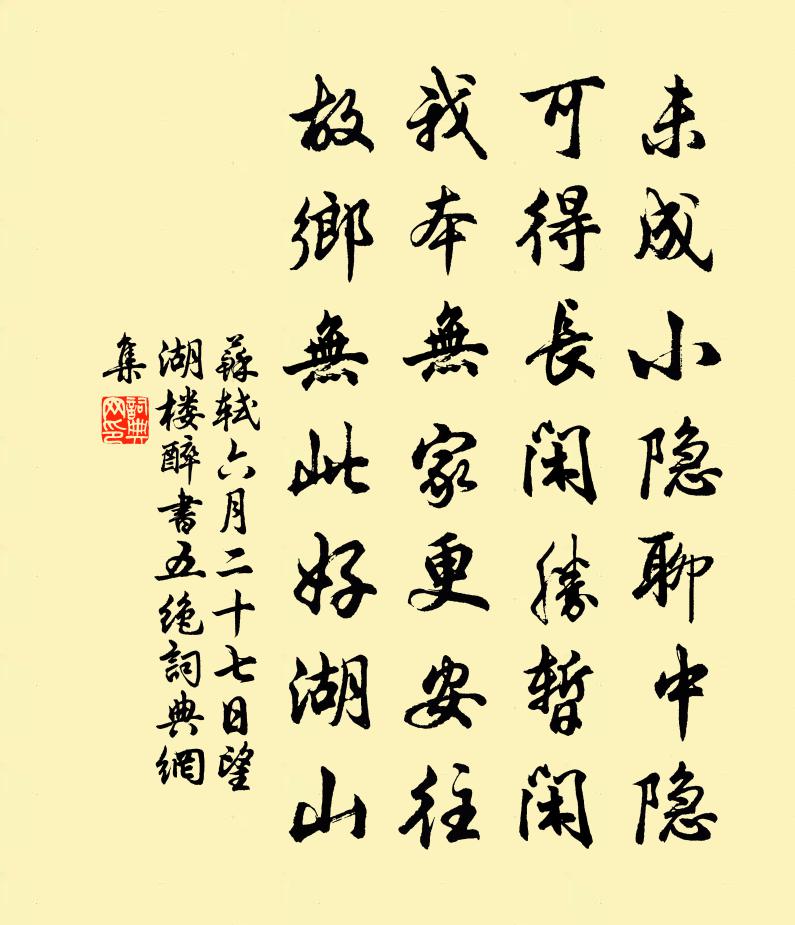 未成小隐聊中隐
可得長闲勝暫闲
我本無家更安往
故鄉無此好湖山
蘇轼六月二十七日望
湖楼醉書五绝詞典網
集
詞典网印